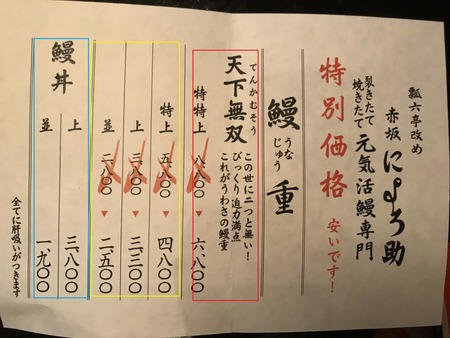 瓢六亭改め
赤坂 にょろ助
裂きたて
焼きたて
元気活鰻専門
特別価格 安いです!
鰻重
うな
じゅう
天下無双
てんかむそう
この世に二つと無い!
びっくり迫力満点
これがうわさの鰻重
特特上 八、八〇〇 ▼ 六、八〇〇
特上 五、八〇〇 ▼ 四、八〇〇
上 三、八〇〇 ▼ 三、三〇〇
並 二、八〇〇 ▼ 二、五〇〇
鰻丼
上 三、八〇〇
並 一、九〇〇
全てに肝吸いがつきます